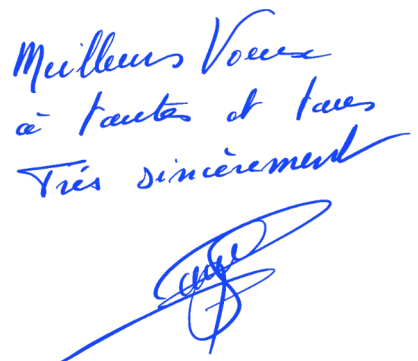 Meilleurs Voeux
à toutes et tous
Très sincèrement